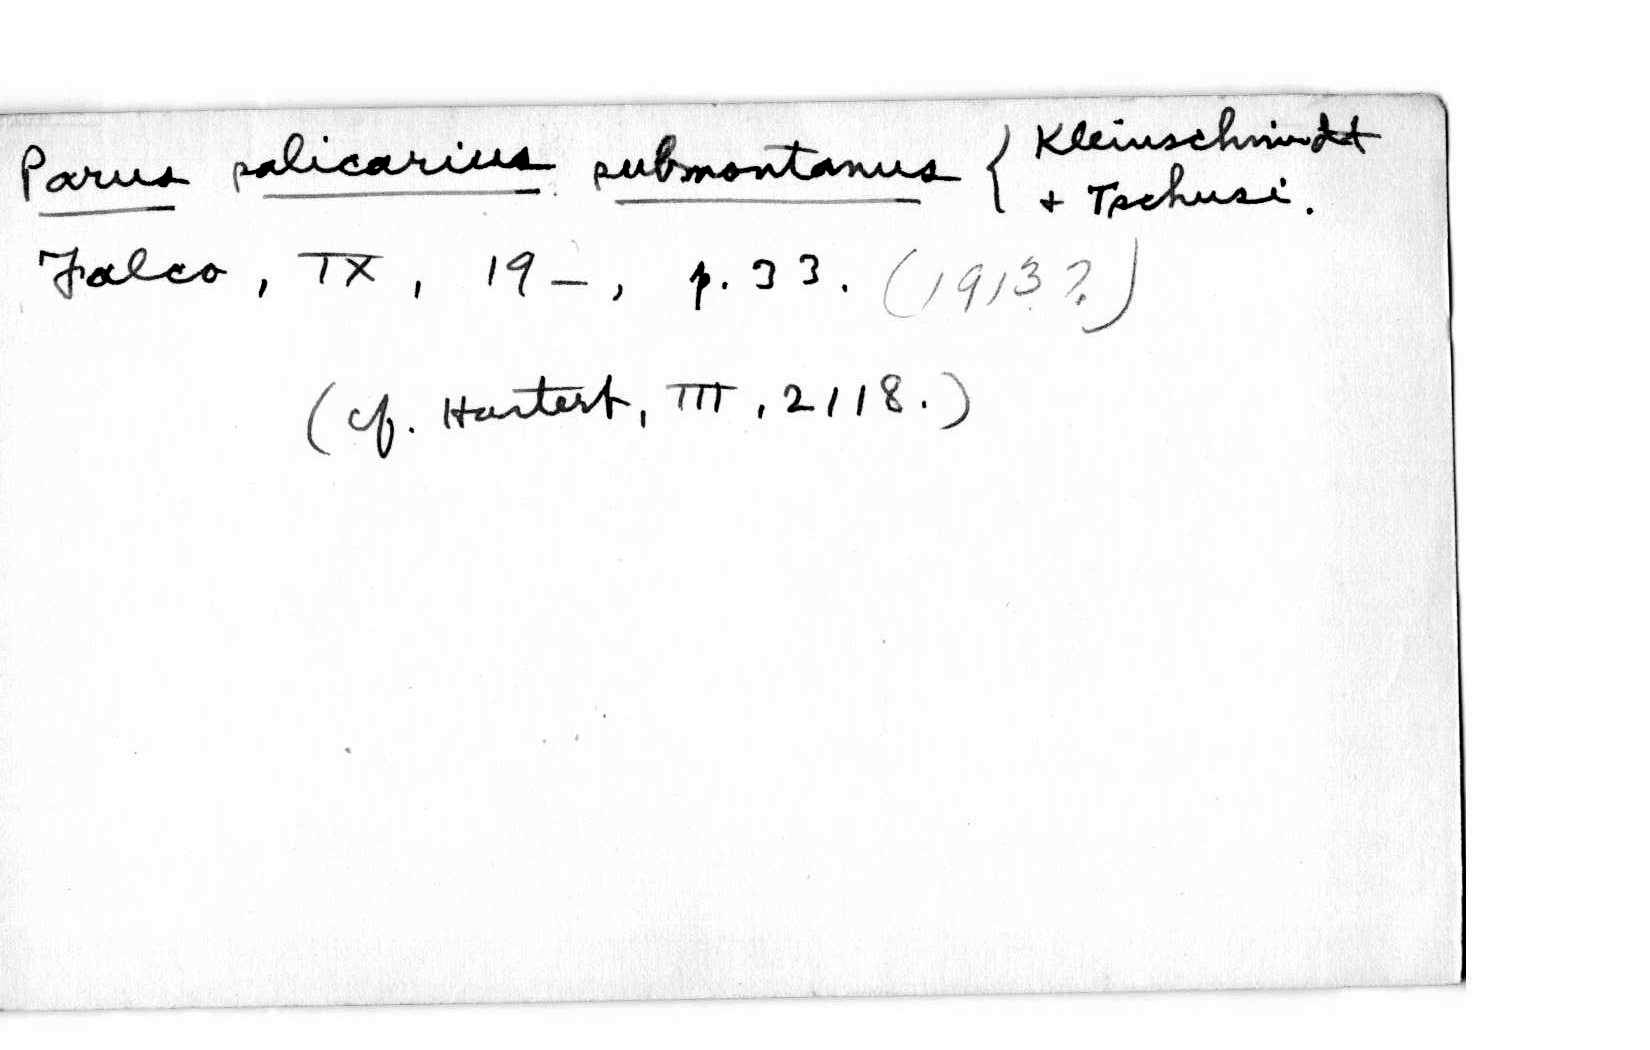 Parus salicarius submontanus { Kleinschmidt
+ Tschusi.
Falco, IX, 19–, p. 33. (1913?)
(cf. Hartert, III, 2118.)